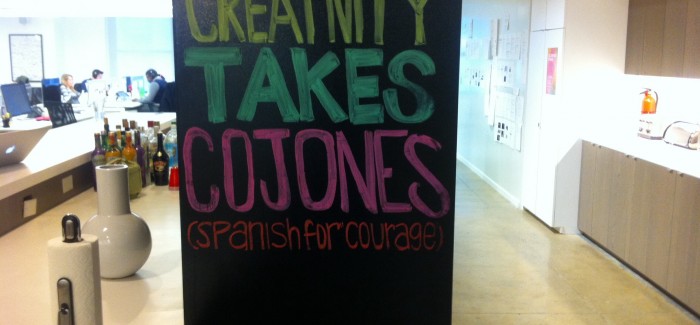 CREATIVITY
TAKES
COJONES
(spanish for courage)